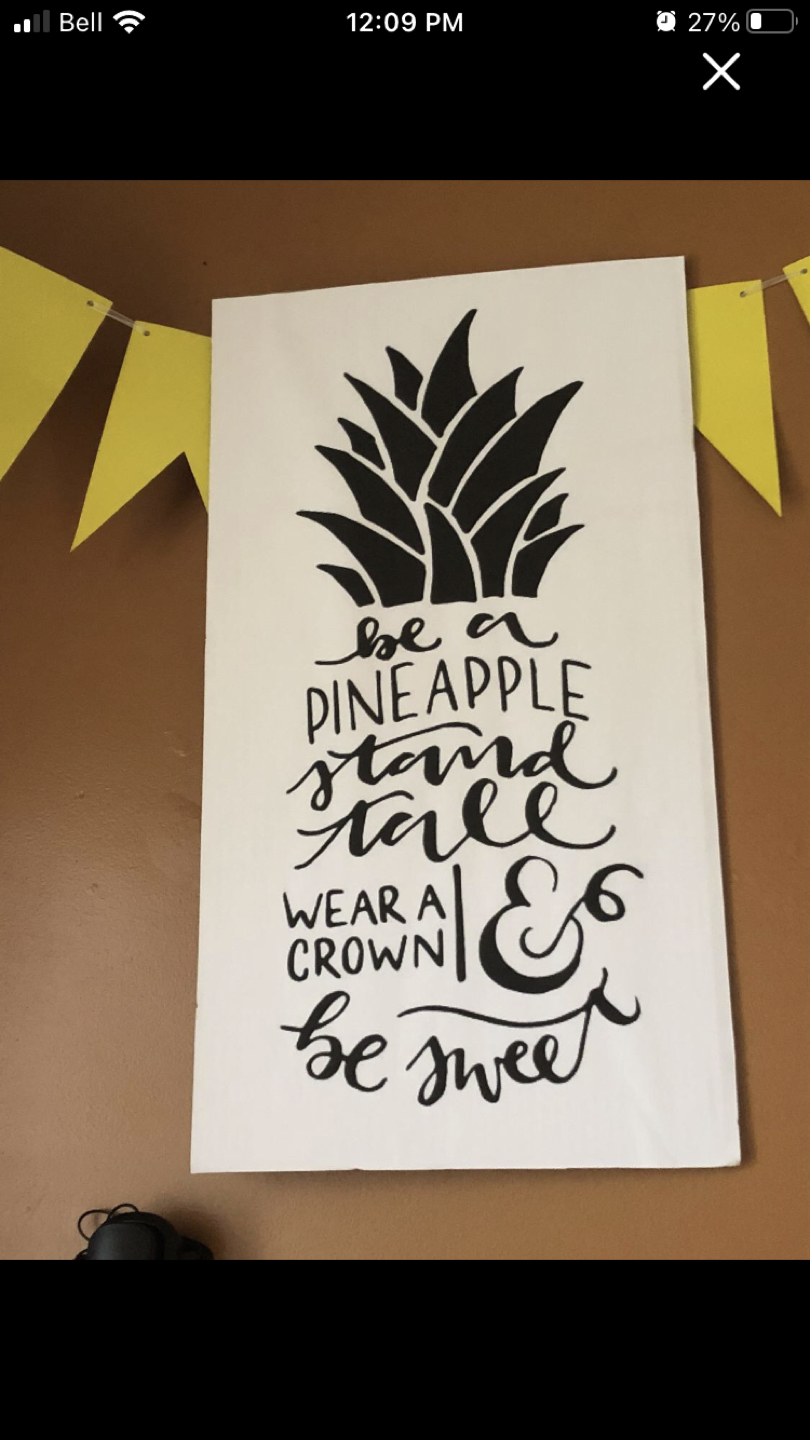 Bell 12:09 PM 27%
be a
PINEAPPLE
stand
tall
WEAR A
CROWN
&
be sweet